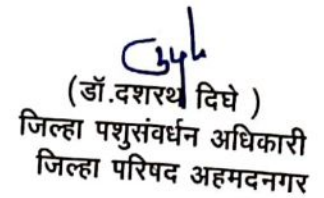 (डॉ.दशरथ दिघे )
जिल्हा पशुसंवर्धन अधिकारी
जिल्हा परिषद अहमदनगर